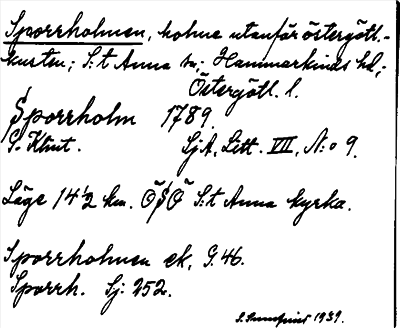 Sporrholmen, holme utanför östergötl.-
kusten; S:t Anna sn; Hammarkinds hd;
Östergötl. l.
Sporrholm 1789.
G. Klint. SjA, Litt. VII, N:o 9.
Läge 14 1/2 km. ÖSÖ S:t Anna kyrka.
Sporrholmen ek. G. 46.
Sporrh. Sj: 252.
1939.